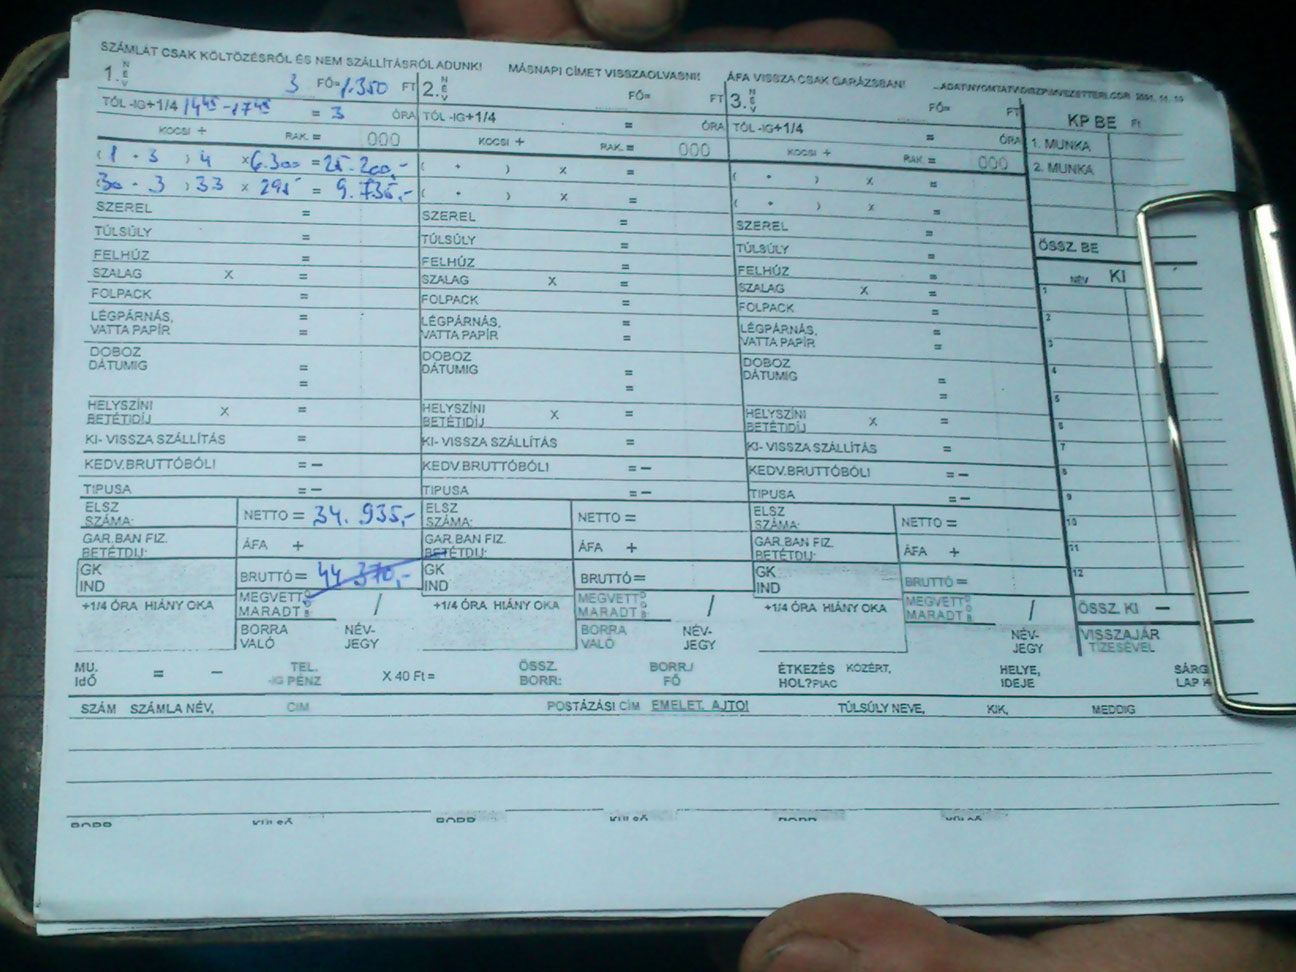 SZÁMLÁT CSAK KÖLTÖZÉSRŐL ÉS NEM SZÁLLÍTÁSRÓL ADUNK! MÁSNAPI CÍMET VISSZAOLVASNI! ÁFA VISSZA CSAK GARÁZSBAN!
1. NÉV 3 FŐ= 1.350 FT 2. NÉV FŐ= FT 3. NÉV FŐ= FT KP BE Ft
TÓL -IG+1/4 14 45 - 17 45 = 3 ÓRA TÓL -IG+1/4 = ÓRA TÓL -IG+1/4 = ÓRA 1. MUNKA
KOCSI + RAK. = 000 KOCSI + RAK. = 000 KOCSI + RAK. = 000 2. MUNKA
(1 + 3) 4 x 6.300 = 25.200,- ( + ) x = ( + ) x =
(30 + 3) 33 x 295 = 9.735,- ( + ) x = ( + ) x =
SZEREL = SZEREL = SZEREL =
TÚLSÚLY = TÚLSÚLY = TÚLSÚLY = ÖSSZ. BE
FELHÚZ = FELHÚZ = FELHÚZ = NÉV KI
SZALAG X = SZALAG X = SZALAG X = 1
FOLPACK = FOLPACK = FOLPACK = 2
LÉGPÁRNÁS, = LÉGPÁRNÁS, = LÉGPÁRNÁS, =
VATTA PAPÍR = VATTA PAPÍR = VATTA PAPÍR = 3
DOBOZ DOBOZ DOBOZ 4
DÁTUMIG = DÁTUMIG = DÁTUMIG =
= = = 5
HELYSZÍNI X = HELYSZÍNI X = HELYSZÍNI X = 6
BETÉTIDÍJ BETÉTIDÍJ BETÉTIDÍJ
KI- VISSZA SZÁLLÍTÁS = KI- VISSZA SZÁLLÍTÁS = KI- VISSZA SZÁLLÍTÁS = 7
KEDV.BRUTTÓBÓL! = – KEDV.BRUTTÓBÓL! = – KEDV.BRUTTÓBÓL! = – 8
TIPUSA = – TIPUSA = – TIPUSA = – 9
ELSZ NETTO = 34.935,- ELSZ NETTO = ELSZ NETTO = 10
SZÁMA: SZÁMA: SZÁMA:
GAR.BAN FIZ. ÁFA + GAR.BAN FIZ. ÁFA + GAR.BAN FIZ. ÁFA + 11
BETÉTDIJ: BETÉTDIJ: BETÉTDIJ:
GK BRUTTÓ = 44 370,- GK BRUTTÓ = GK BRUTTÓ = 12
IND IND IND
+1/4 ÓRA HIÁNY OKA MEGVETT / +1/4 ÓRA HIÁNY OKA MEGVETT / +1/4 ÓRA HIÁNY OKA MEGVETT / ÖSSZ. KI –
MARADT MARADT MARADT
BORRA NÉV- BORRA NÉV- NÉV- VISSZAJÁR
VALÓ JEGY VALÓ JEGY JEGY TIZESÉVEL
MU. = – TEL. X 40 Ft = ÖSSZ. BORR./ ÉTKEZÉS KÖZÉRT, HELYE, SÁRG
IDŐ -IG PÉNZ BORR: FŐ HOL? PIAC IDEJE LAP
SZÁM SZÁMLA NÉV, CIM POSTÁZÁSI CÍM EMELET, AJTO! TÚLSÚLY NEVE, KIK, MEDDIG
BORR KÜLSŐ BORR KÜLSŐ BORR KÜLSŐ